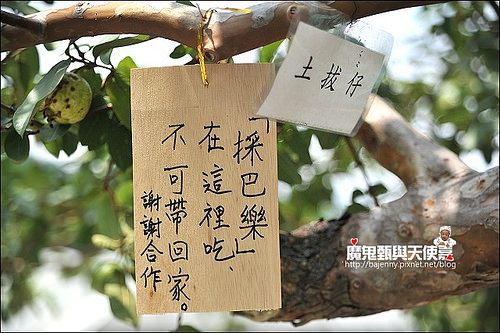 「採巴樂」
在這裡吃、
不可帶回家。
謝謝合作
土拔仔
魔鬼甄與天使嘉
http://bajenny.pixnet.net/blog